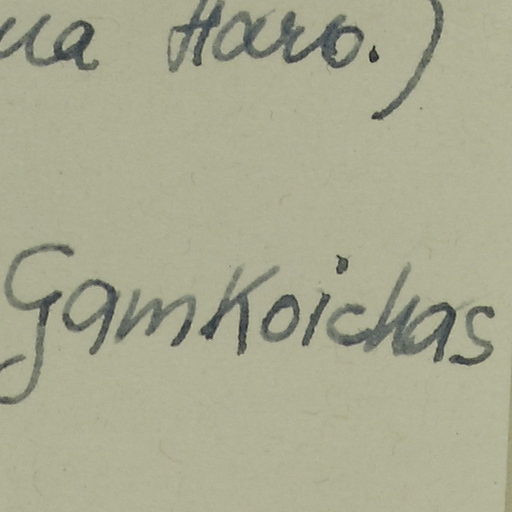 Haro.)
Gamkoichas